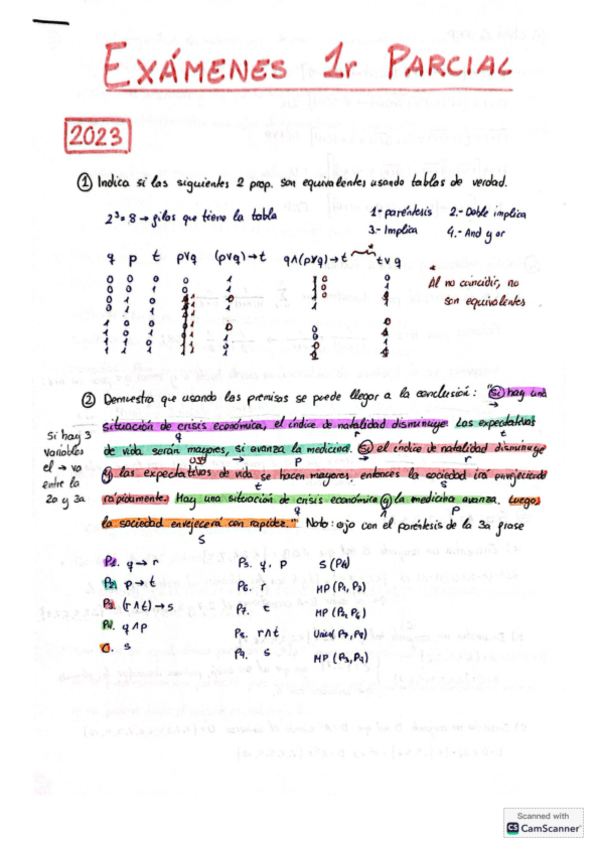 EXÁMENES 1r PARCIAL
2023
① Indica si las siguientes 2 prop. son equivalentes usando tablas de verdad.
2³=8 → filas que tiene la tabla
1- paréntesis 2.- Doble implica
3- Implica 4.- And y or
q p t p∨q (p∨q)→t q∧(p∨q)→t t∨q
Al no coincidir, no
son equivalentes
② Demuestra que usando las premisas se puede llegar a la conclusión: "Si hay una
situación de crisis económica, el índice de natalidad disminuye. Las expectativas
q r t
de vida serán mayores, si avanza la medicina. Si el índice de natalidad disminuye
p r
y las expectativas de vida se hacen mayores, entonces la sociedad irá envejeciendo
t s
rápidamente. Hay una situación de crisis económica y la medicina avanza. Luego,
q ∧ p
la sociedad envejecerá con rapidez." Nota: ojo con el paréntesis de la 3a frase
s
Si hay 3
variables
el → va
entre la
2a y 3a
P1. q→r P5. q, p S(P4)
P2. p→t P6. r MP(P1, P5)
P3. (r∧t)→s P7. t MP(P2, P5)
P4. q∧p P8. r∧t
C. s P9. s